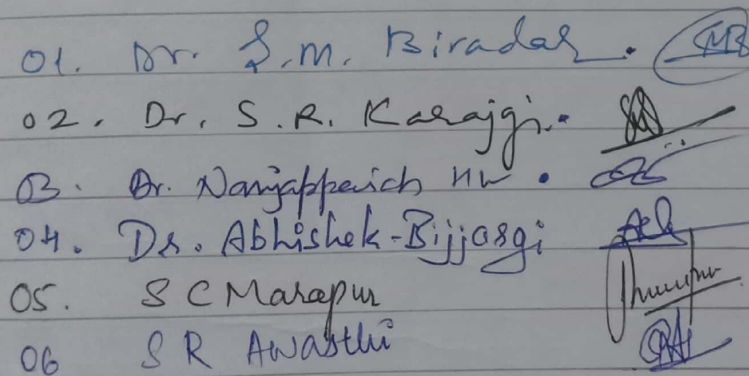 01. Dr. S.M. Biradar.
02. Dr. S.R. Karajgi.
03. Dr. Nanjappaiah HM.
04. Dr. Abhishek-Bijjargi
05. S C Marapur
06 S R Awasthi